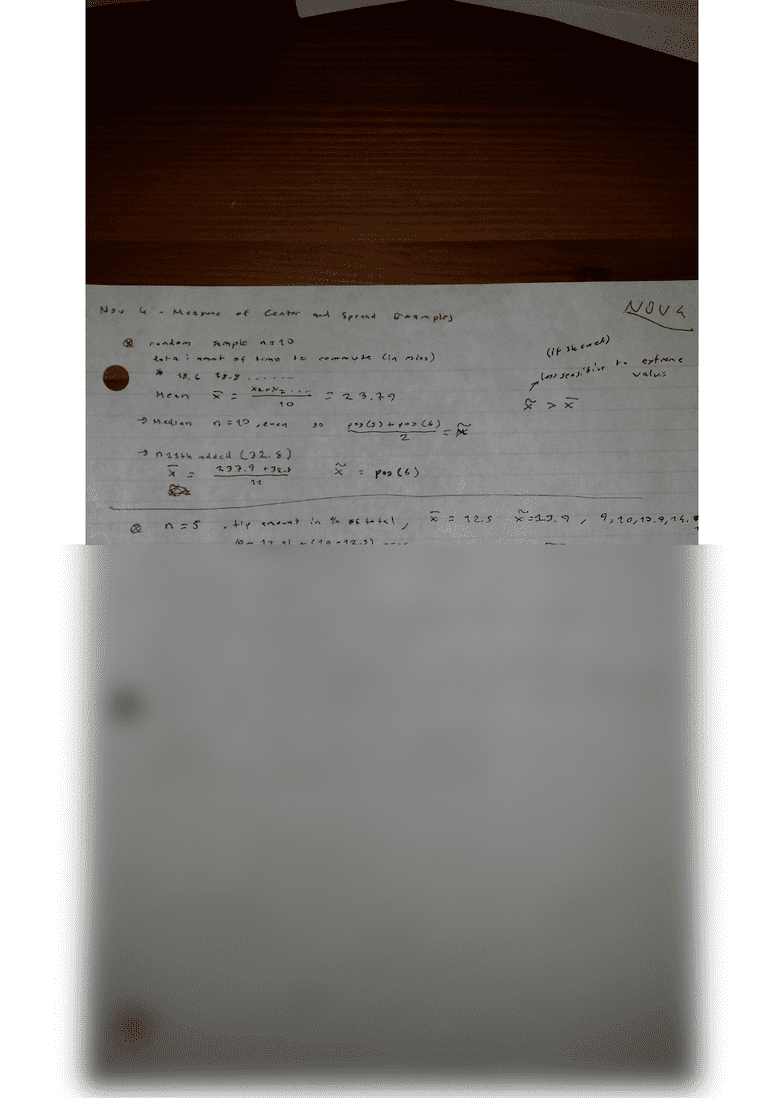 Nov 4 - Measure of Center and Spread Examples
NOV 4
⊗ random sample n=10
data : amnt of time to commute (in mins)
* 18.6 18.8 ......
Mean x̄ = x₁+x₂ ... / 10 = 23.79
(if skewed)
less sensitive to extreme
values
x̃ > x̄
→ Median n=10, even so pos(5) + pos(6) / 2 = x̃
→ n 11th added (32.8)
x̄ = 237.9 + 32.8 / 11 x̃ = pos(6)
⊗ n=5 , tip amount in % of total, x̄ = 12.5 x̃=13.9 , 9,10,13.9,14.